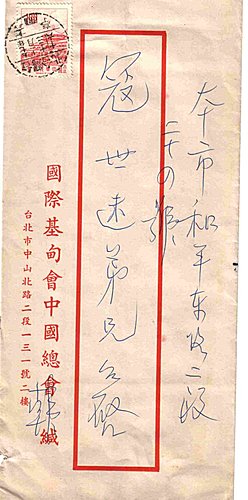 本市和平东路二段
二十四號
寇世远弟兄台啟
國際基甸會中國總會緘
台北市中山北路二段一三一號二樓